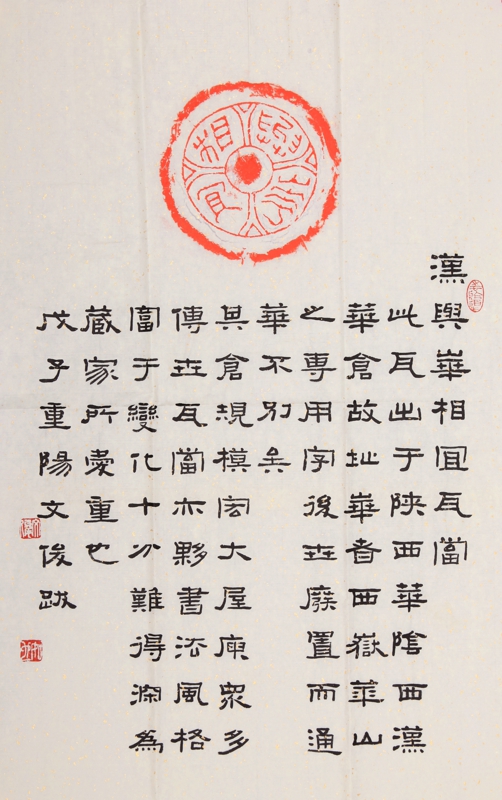 與崋相宜
漢與崋相宜瓦當
此瓦出于陝西華陰西漢
華倉故址崋者西嶽華山
之專用字後世廢置而通
華不別矣
其倉規模宏大屋庾眾多
傳世瓦當亦夥書法風格
富于變化十分難得深為
藏家所愛重也
戊子重陽文俊跋